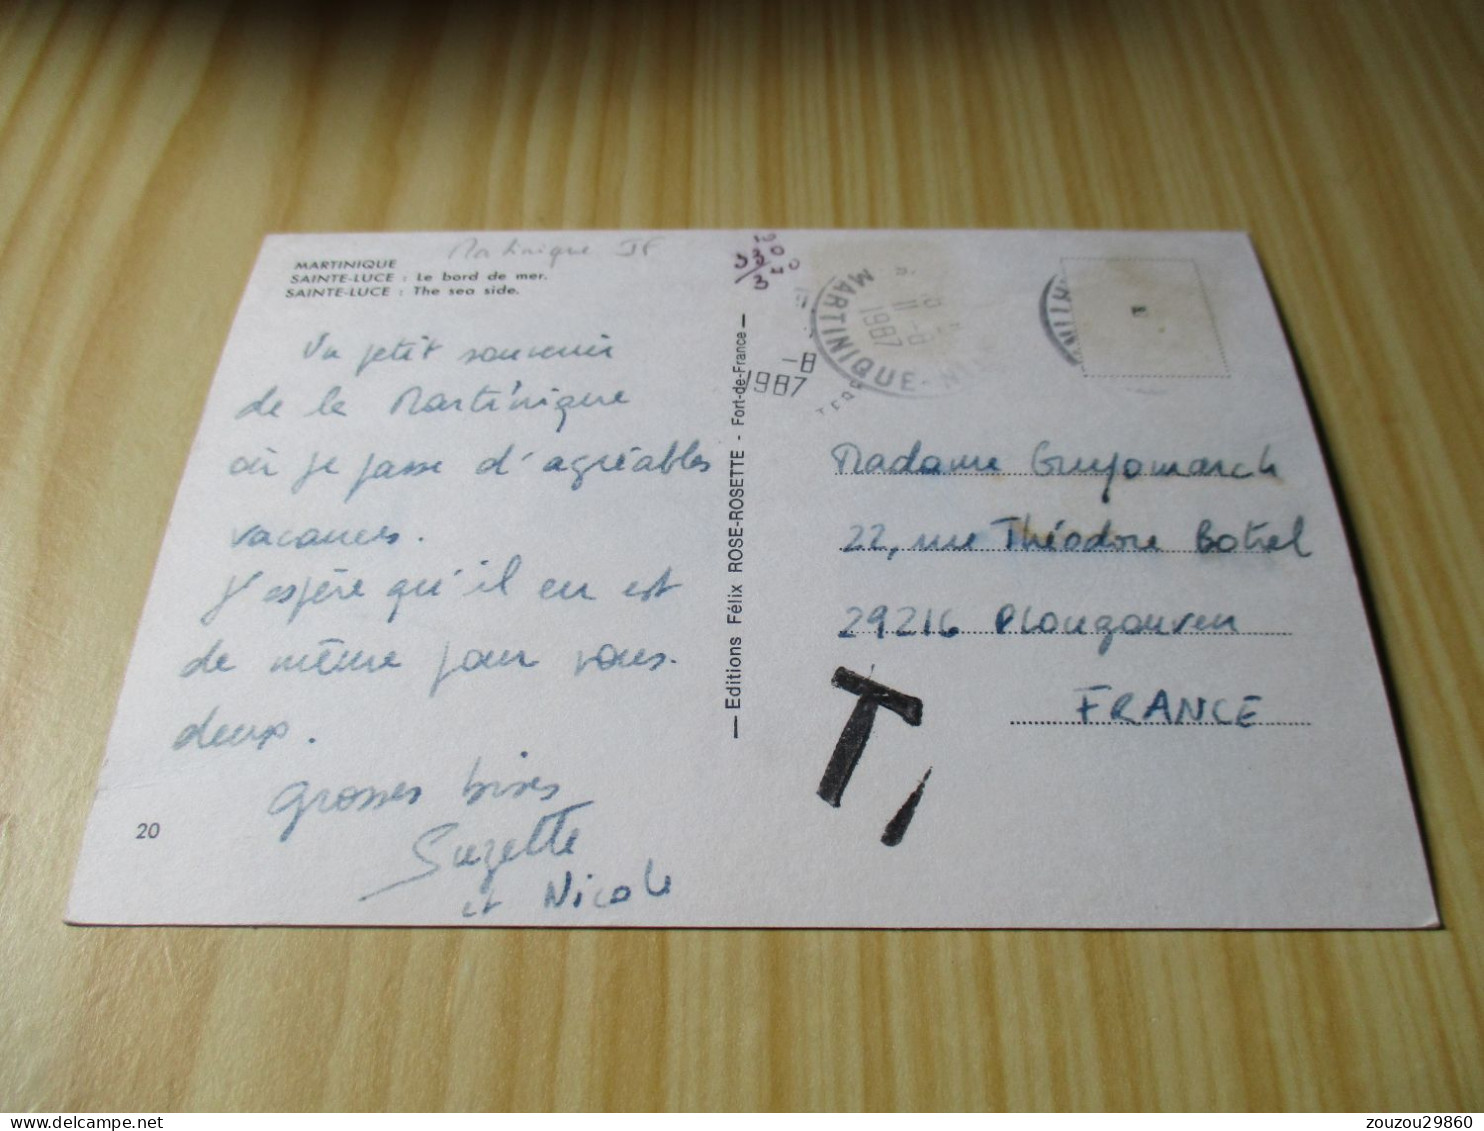 MARTINIQUE
SAINTE-LUCE : Le bord de mer.
SAINTE-LUCE : The sea side.
Martinique
Un petit souvenir
de la Martinique
où je passe d'agréables
vacances.
J'espère qu'il en est
de même pour vous
deux.
Grosses bises
Suzette
et Nicole
20
Editions Félix ROSE-ROSETTE - Fort-de-France
-8
1987
MARTINIQUE
1987
Madame Guyomarch
22, rue Théodore Botrel
29216 Plougonven
FRANCE
T
zouzou29860